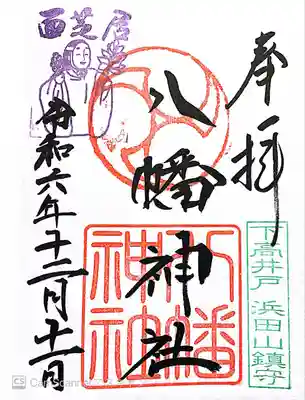 奉拝
下高井戸 浜田山鎮守
八幡神社
八幡
神社
面芝居
令和六年十二月十一日
CS CamScanner